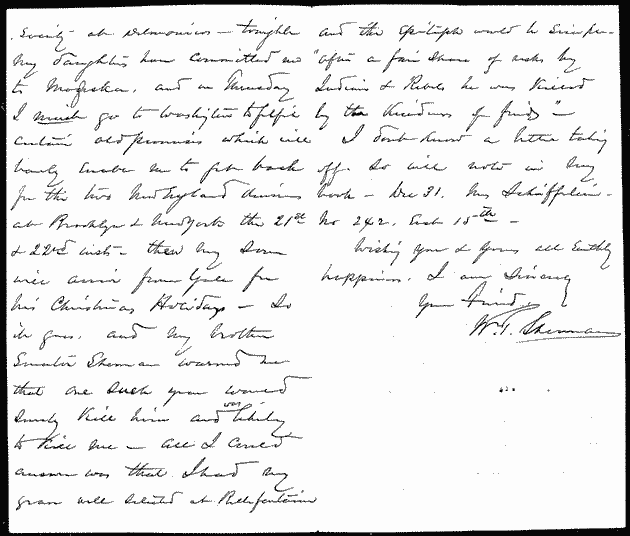 Society at Delmonicos — tonight
my daughters have committed me
to Modjeska, and on Thursday
I must go to Washington to fulfil
certain old promises which will
barely enable me to get back
for the two New England dinners
at Brooklyn & New York the 21st
& 22nd inst — then my Son
will arrive from Yale for
his Christmas Holidays — So
it goes, and my brother
Senator Sherman warned me
that one such year would
surely Kill him and was likely
to Kill me — all I could
answer was that I had my
grave well selected at
and the Epitaph would be Simple —
"After a fair share of risks by
Indians & Rebels he was Killed
by the Kindness of friends" —
I don't Know a better taking
off. So will note in my
book — Dec 31. Mrs Schieffelin —
No 242. East 15th —
Wishing you & yours all Earthly
happiness, I am Sincerely
Your Friend
W. T. Sherman